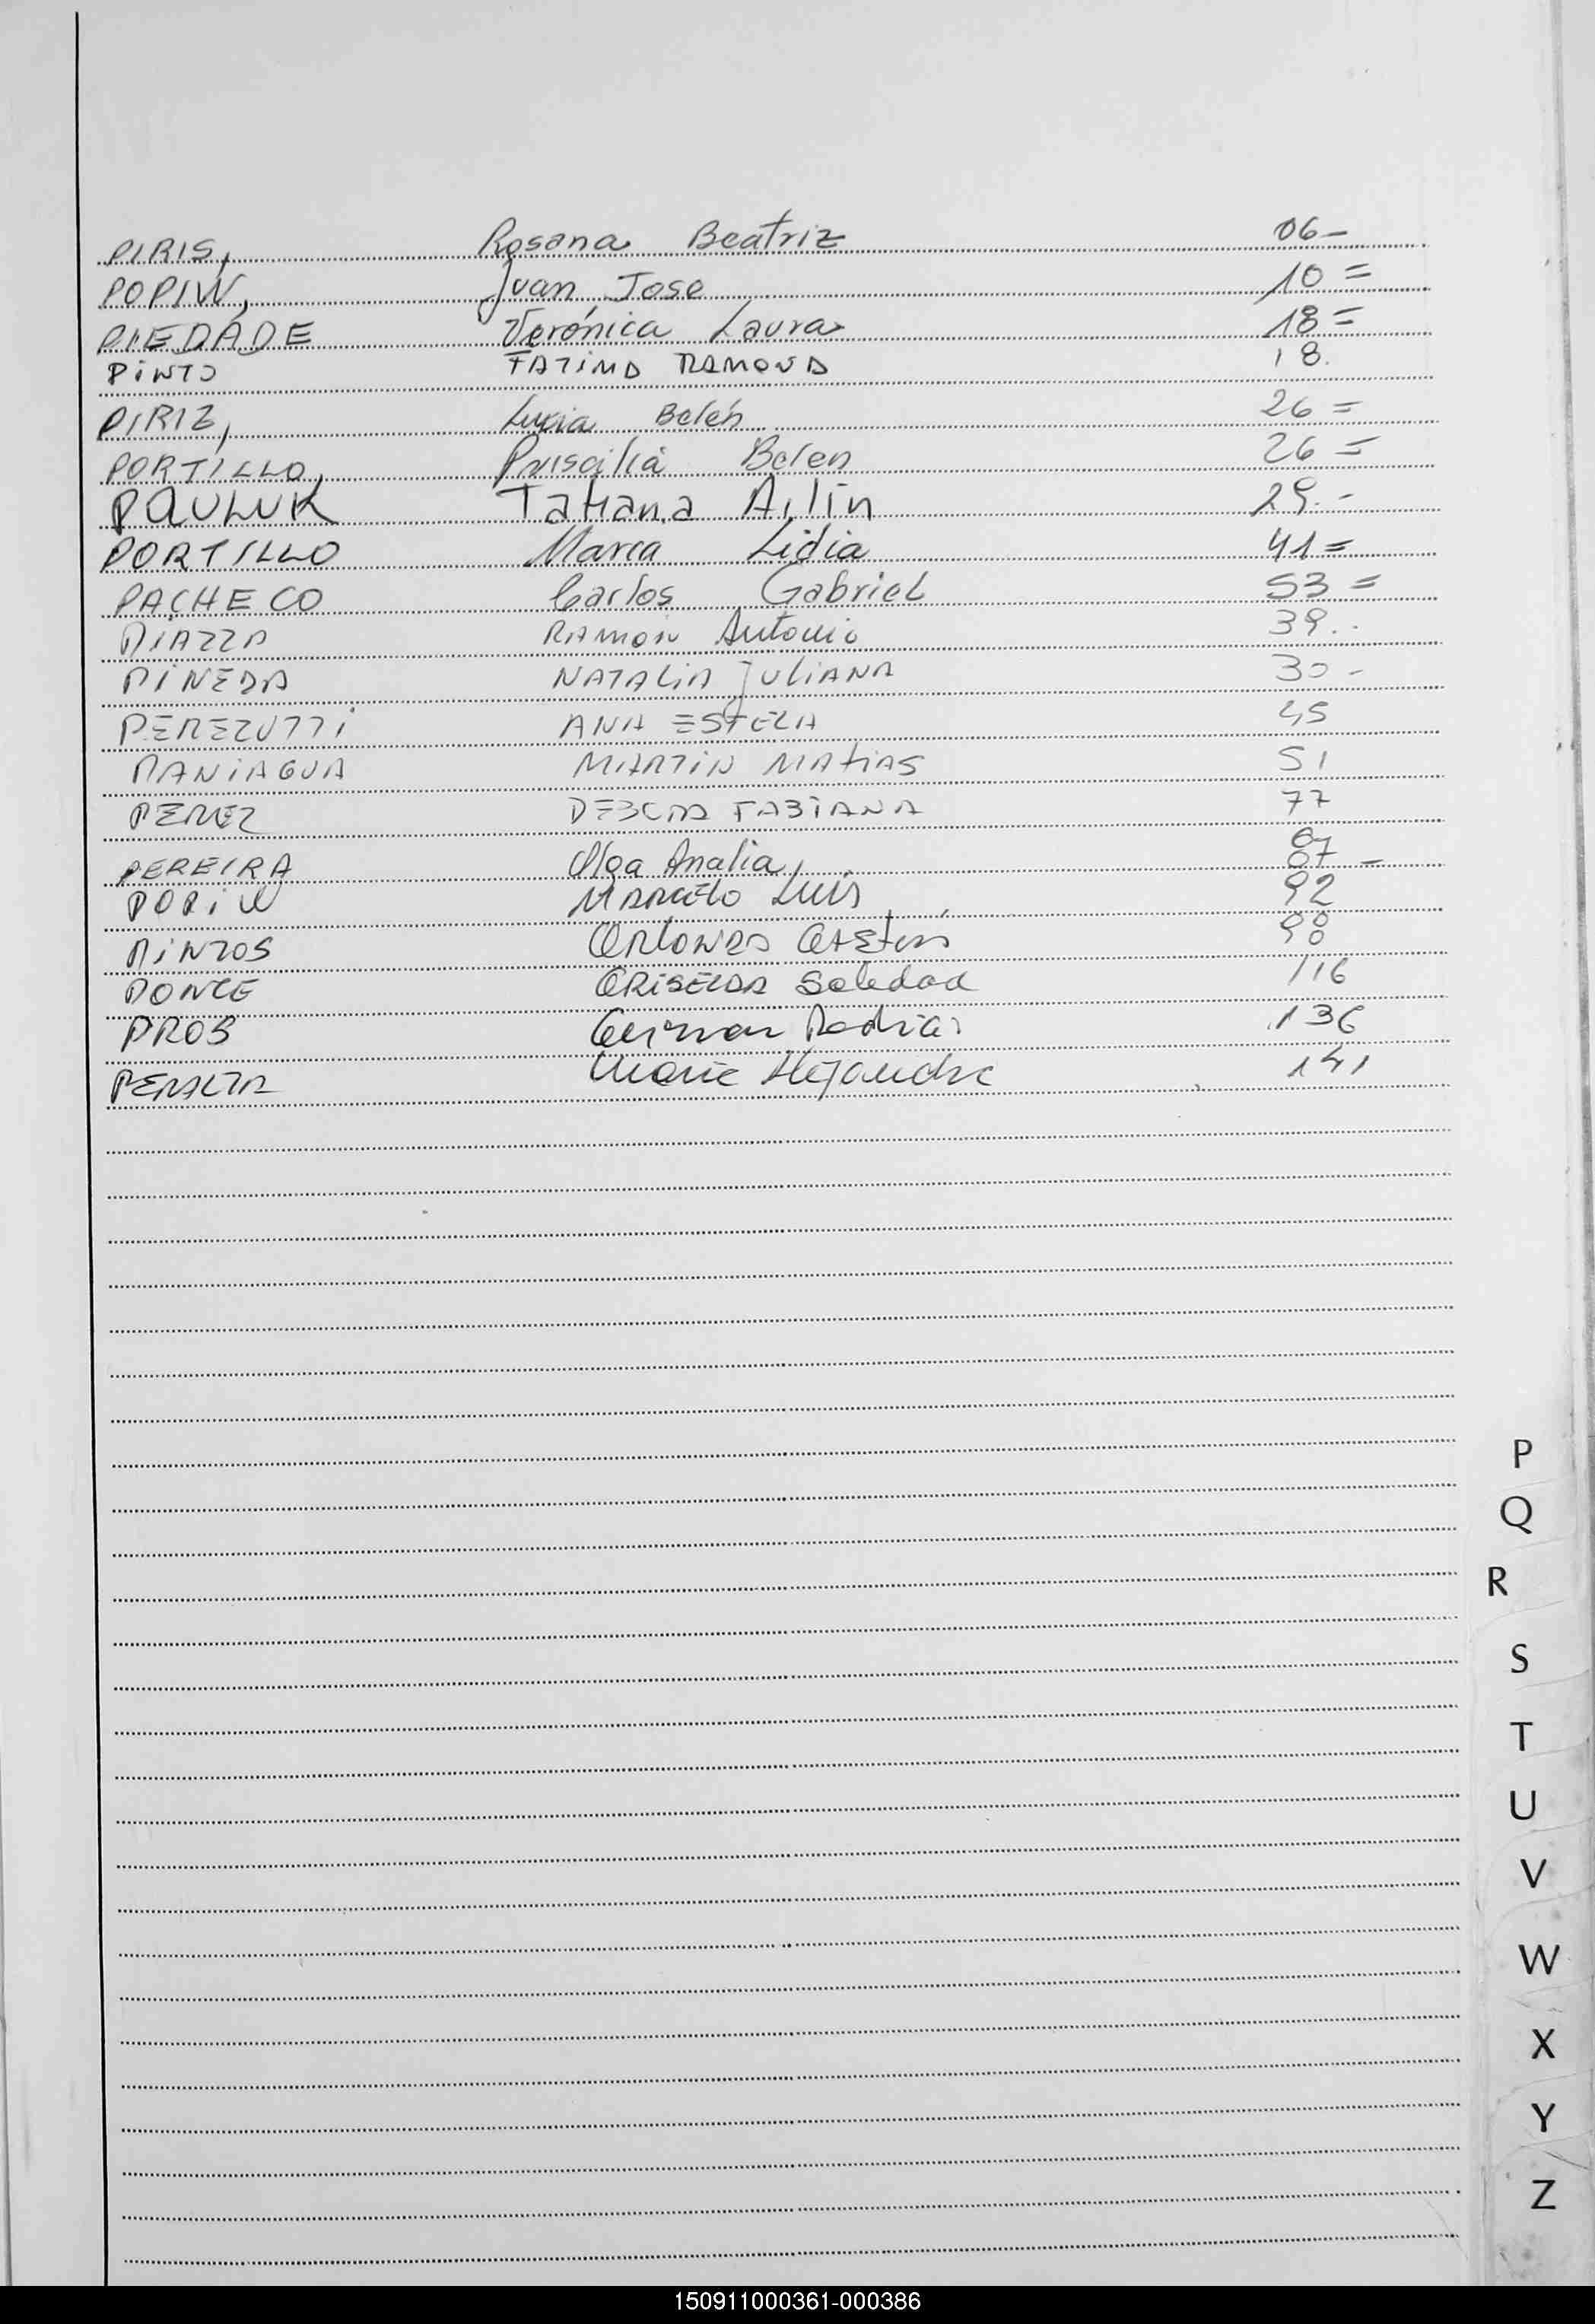 PIRIS, Rosana Beatriz 06-
POPIW, Juan Jose 10=
PIEDADE Verónica Laura 18=
PINTO FATIMA RAMONA 18.
PIRIZ, Lucia Belén 26=
PORTILLO, Priscilia Belen 26=
PAULUK Tatiana Ailin 29.-
PORTILLO Marca Lidia 41=
PACHECO Carlos Gabriel 53=
PIAZZA RAMON Antonio 39..
PINEDA NATALIA JULIANA 30-
PEREZUTTI ANA ESTELA 45
PANIAGUA MARTIN MATIAS 51
PEREZ DEBORA FABIANA 77
PEREIRA Olga Analia 87 07-
POPIW MARCELO Luis 92
PINTOS ORLANDO 98
PONCE GRISELDA Soledad 116
PROB German 136
PERALTA Maria Alejandra 141
P
Q
R
S
T
U
V
W
X
Y
Z
150911000361-000386